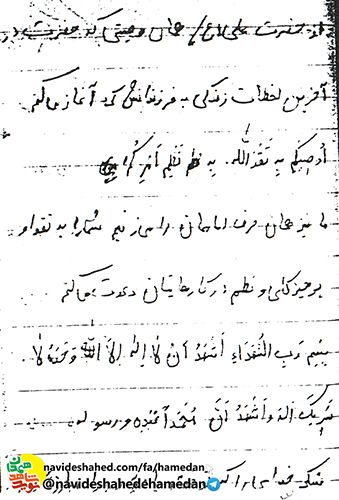 از حضرت علی (ع) همان وصیتی که حضرت در
آخرین لحظات زندگی به فرزندانش کرد آغاز می‌کنم
اُوصیکُم بِه تَقْوَالله. بِه نَظمِ اَمرِکُم
ما نیز همان حرف امامان را می‌زنیم شما را به تقوا و
پرهیزکاری و نظم در کارهایتان دعوت می‌کنم
بِسمِ رَبِ الشُّهَداءِ اَشْهَدُ اَنْ لا اِلهَ اِلاَّ اللهُ وَحْدَهُ لا
شَریکَ لَهُ وَ اَشْهَدُ اَنَّ مُحَمَّداً عَبْدُهُ وَ رَسولُه
خدای را که
navideshahed.com/fa/hamedan_
@navideshahedehamedan